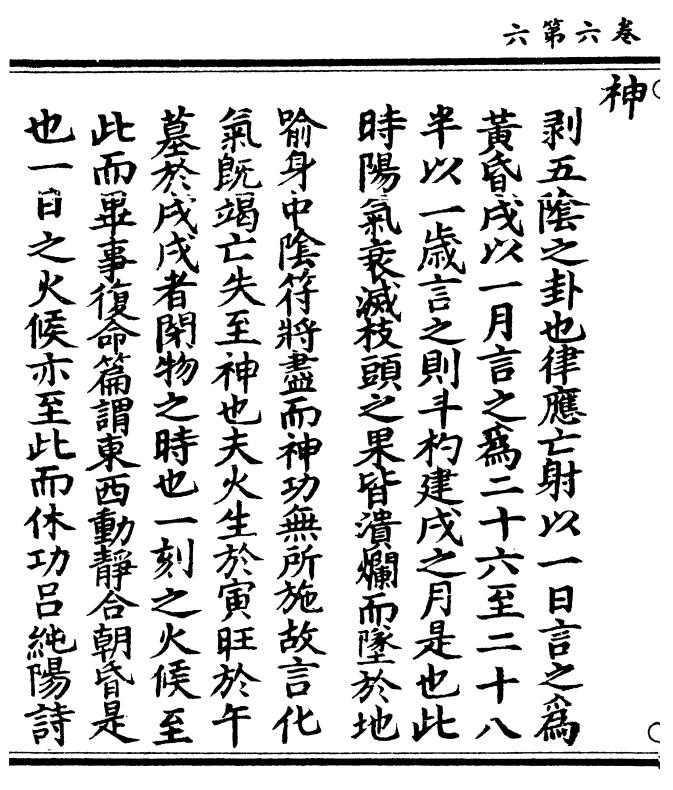 卷六第六
神
剥五陰之卦也律應亡射以一日言之為
黃昏戌以一月言之為二十六至二十八
半以一歲言之則斗杓建戌之月是也此
時陽氣衰滅枝頭之果皆潰爛而墜於地
喻身中陰符將盡而神功無所施故言化
氣旣竭亡失至神也夫火生於寅旺於午
墓於戌戌者閉物之時也一刻之火候至
此而畢事復命篇謂東西動靜合朝昏是
也一日之火候亦至此而休功吕純陽詩